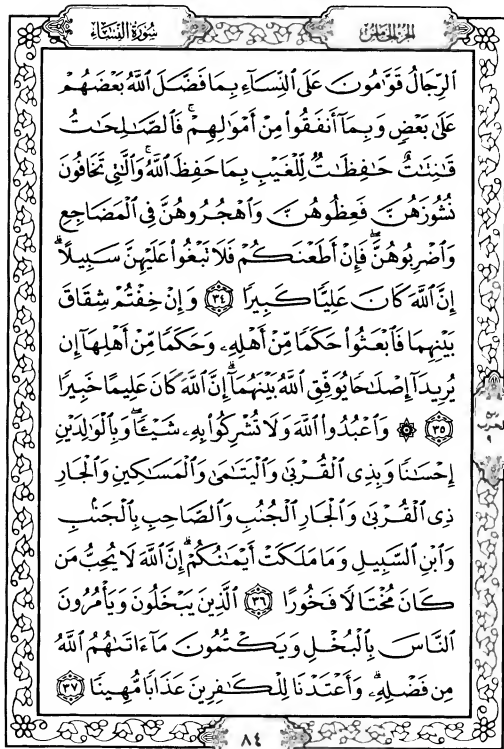 سُورَةُ النِّسَاءِ
الجُزْءُ الخَامِسُ
ٱلرِّجَالُ قَوَّٰمُونَ عَلَى ٱلنِّسَآءِ بِمَا فَضَّلَ ٱللَّهُ بَعْضَهُمْ
عَلَىٰ بَعْضٍ وَبِمَآ أَنفَقُوا۟ مِنْ أَمْوَٰلِهِمْ ۚ فَٱلصَّٰلِحَٰتُ
قَٰنِتَٰتٌ حَٰفِظَٰتٌ لِّلْغَيْبِ بِمَا حَفِظَ ٱللَّهُ ۚ وَٱلَّٰتِى تَخَافُونَ
نُشُوزَهُنَّ فَعِظُوهُنَّ وَٱهْجُرُوهُنَّ فِى ٱلْمَضَاجِعِ
وَٱضْرِبُوهُنَّ ۖ فَإِنْ أَطَعْنَكُمْ فَلَا تَبْغُوا۟ عَلَيْهِنَّ سَبِيلًا ۗ
إِنَّ ٱللَّهَ كَانَ عَلِيًّا كَبِيرًا ٣٤ وَإِنْ خِفْتُمْ شِقَاقَ
بَيْنِهِمَا فَٱبْعَثُوا۟ حَكَمًا مِّنْ أَهْلِهِۦ وَحَكَمًا مِّنْ أَهْلِهَآ إِن
يُرِيدَآ إِصْلَٰحًا يُوَفِّقِ ٱللَّهُ بَيْنَهُمَآ ۗ إِنَّ ٱللَّهَ كَانَ عَلِيمًا خَبِيرًا
٣٥ ۞ وَٱعْبُدُوا۟ ٱللَّهَ وَلَا تُشْرِكُوا۟ بِهِۦ شَيْـًٔا ۖ وَبِٱلْوَٰلِدَيْنِ
إِحْسَٰنًا وَبِذِى ٱلْقُرْبَىٰ وَٱلْيَتَٰمَىٰ وَٱلْمَسَٰكِينِ وَٱلْجَارِ
ذِى ٱلْقُرْبَىٰ وَٱلْجَارِ ٱلْجُنُبِ وَٱلصَّاحِبِ بِٱلْجَنۢبِ
وَٱبْنِ ٱلسَّبِيلِ وَمَا مَلَكَتْ أَيْمَٰنُكُمْ ۗ إِنَّ ٱللَّهَ لَا يُحِبُّ مَن
كَانَ مُخْتَالًا فَخُورًا ٣٦ ٱلَّذِينَ يَبْخَلُونَ وَيَأْمُرُونَ
ٱلنَّاسَ بِٱلْبُخْلِ وَيَكْتُمُونَ مَآ ءَاتَىٰهُمُ ٱللَّهُ
مِن فَضْلِهِۦ ۗ وَأَعْتَدْنَا لِلْكَٰفِرِينَ عَذَابًا مُّهِينًا ٣٧
٨٤